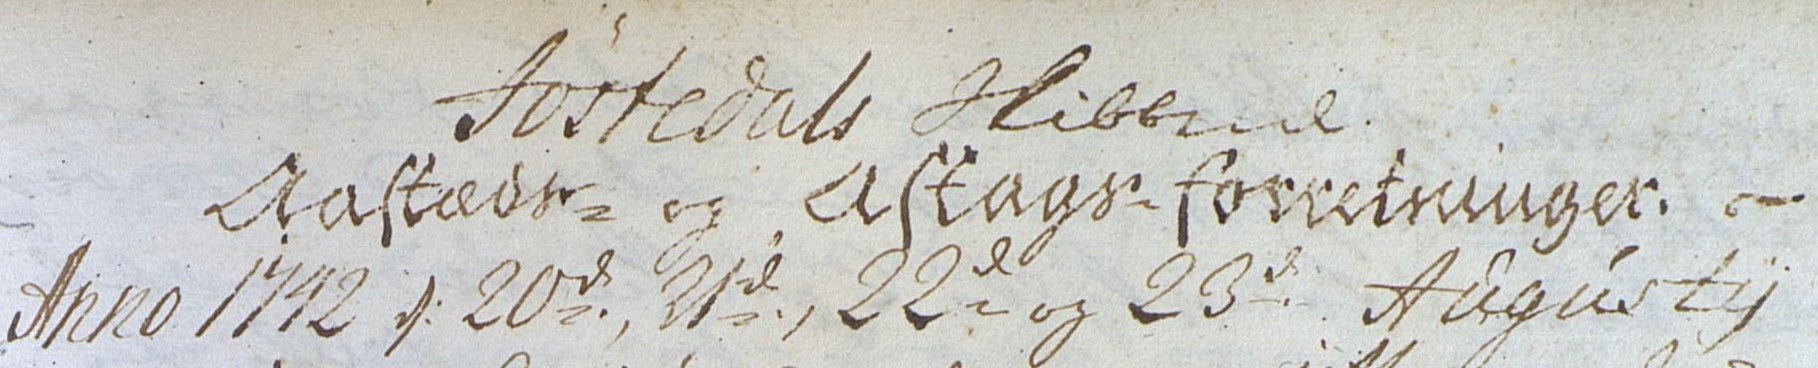 Jostedals Skibbrede.
Aastæds- og Aftags-forretninger. -
Anno 1742 d: 20de., 21de., 22de og 23de. Augustij